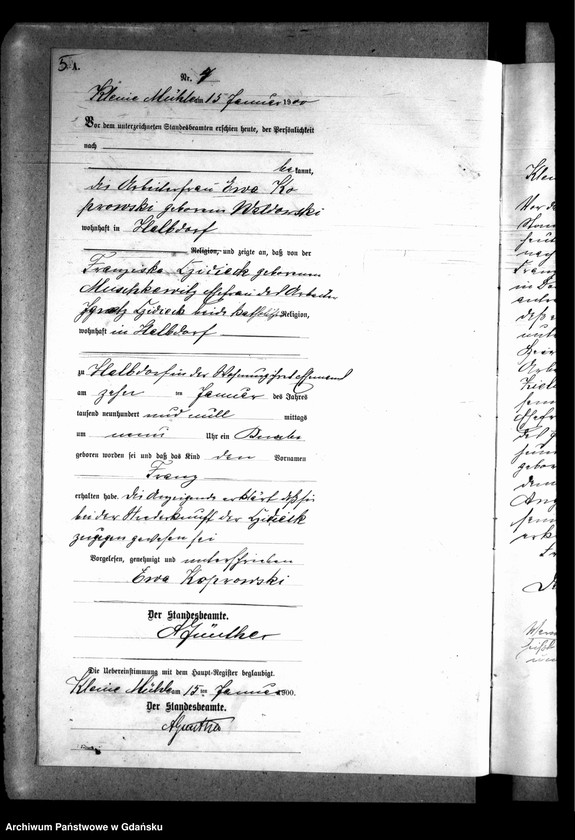 5.
A.
Nr. 4
Kleine Mühle am 15 Januar 1900
Vor dem unterzeichneten Standesbeamten erschien heute, der Persönlichkeit
nach
bekannt,
die Arbeiterfrau Ewa Ko
prowski geborene
wohnhaft in Halbdorf
Religion, und zeigte an, daß von der
Franziska geborenen
Muschkewitz Ehefrau des Arbeiter
Ignatz beide katholischer Religion,
wohnhaft in Halbdorf
zu Halbdorf in der Wohnung ihres Ehemannes
am zehn ten Januar des Jahres
tausend neunhundert und null mittags
um neun Uhr ein Knabe
geboren worden sei und daß das Kind den Vornamen
Franz
erhalten habe. Die Anzeigende erklärt daß sie
bei der Niederkunft der
zugegen gewesen sei
Vorgelesen, genehmigt und unterschrieben
Ewa Koprowski
Der Standesbeamte.
AGünther
Die Uebereinstimmung mit dem Haupt-Register beglaubigt.
Kleine Mühle am 15 ten Januar 1900.
Der Standesbeamte.
AGünther
Archiwum Państwowe w Gdańsku